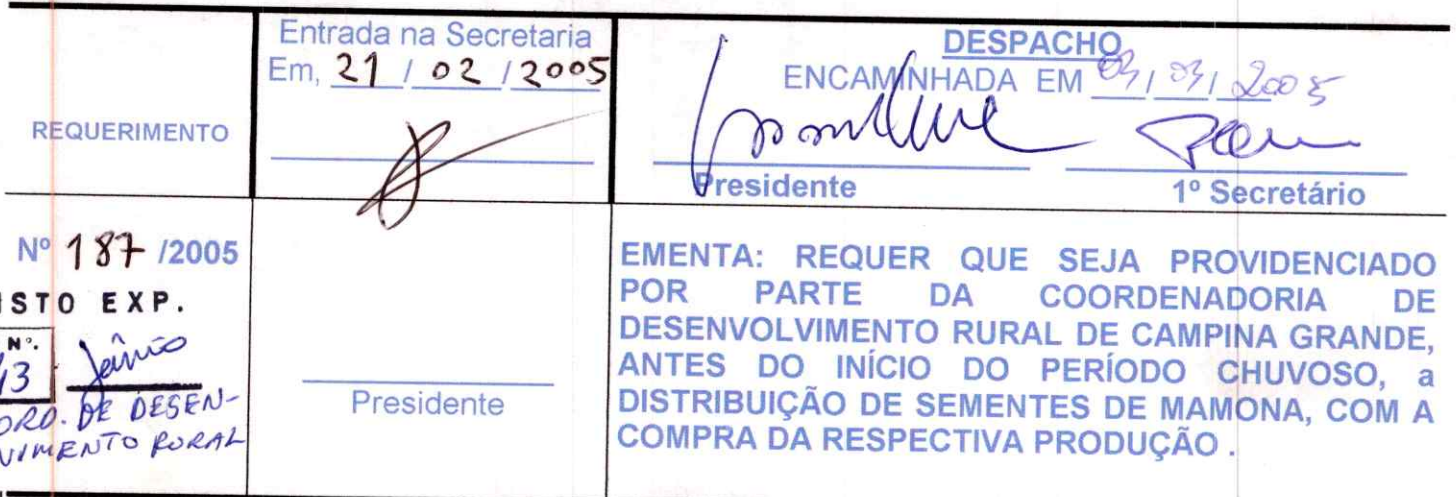 REQUERIMENTO
Entrada na Secretaria
Em, 21 / 02 / 2005
DESPACHO
ENCAMINHADA EM 03 / 03 / 2005
Presidente
1º Secretário
Nº 187 /2005
ISTO EXP.
Nº.
13
Jânio
ORD. DE DESEN-
VIMENTO RURAL
Presidente
EMENTA: REQUER QUE SEJA PROVIDENCIADO
POR PARTE DA COORDENADORIA DE
DESENVOLVIMENTO RURAL DE CAMPINA GRANDE,
ANTES DO INÍCIO DO PERÍODO CHUVOSO, a
DISTRIBUIÇÃO DE SEMENTES DE MAMONA, COM A
COMPRA DA RESPECTIVA PRODUÇÃO .